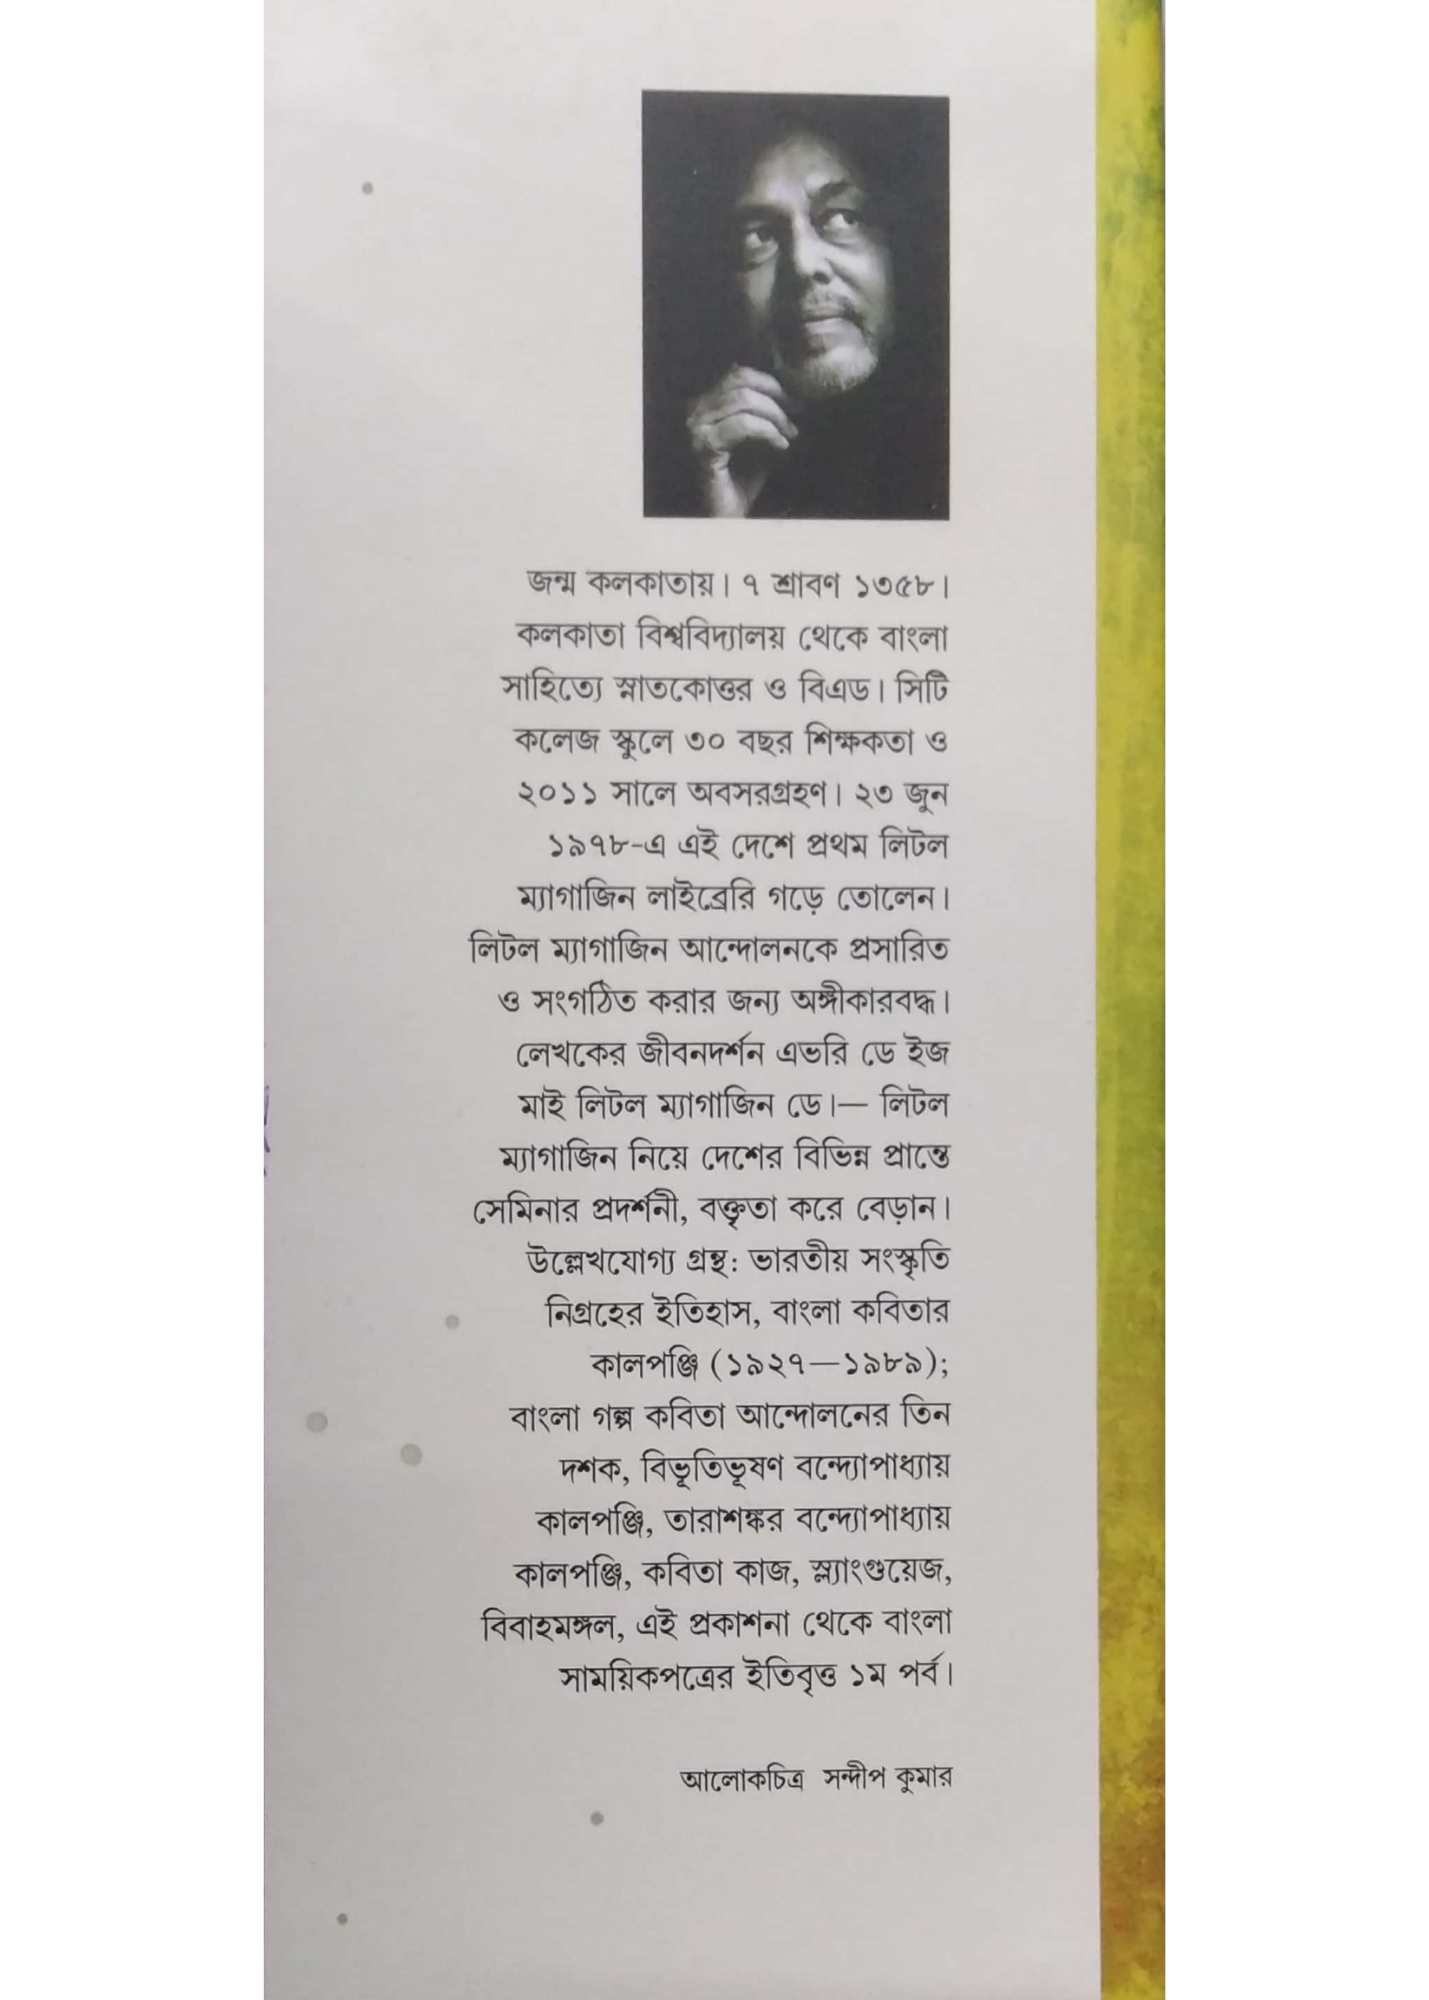 জন্ম কলকাতায়। ৭ শ্রাবণ ১৩৫৮।
কলকাতা বিশ্ববিদ্যালয় থেকে বাংলা
সাহিত্যে স্নাতকোত্তর ও বিএড। সিটি
কলেজ স্কুলে ৩০ বছর শিক্ষকতা ও
২০১১ সালে অবসরগ্রহণ। ২৩ জুন
১৯৭৮-এ এই দেশে প্রথম লিটল
ম্যাগাজিন লাইব্রেরি গড়ে তোলেন।
লিটল ম্যাগাজিন আন্দোলনকে প্রসারিত
ও সংগঠিত করার জন্য অঙ্গীকারবদ্ধ।
লেখকের জীবনদর্শন এভরি ডে ইজ
মাই লিটল ম্যাগাজিন ডে।— লিটল
ম্যাগাজিন নিয়ে দেশের বিভিন্ন প্রান্তে
সেমিনার প্রদর্শনী, বক্তৃতা করে বেড়ান।
উল্লেখযোগ্য গ্রন্থ: ভারতীয় সংস্কৃতি
নিগ্রহের ইতিহাস, বাংলা কবিতার
কালপঞ্জি (১৯২৭—১৯৮৯);
বাংলা গল্প কবিতা আন্দোলনের তিন
দশক, বিভূতিভূষণ বন্দ্যোপাধ্যায়
কালপঞ্জি, তারাশঙ্কর বন্দ্যোপাধ্যায়
কালপঞ্জি, কবিতা কাজ, স্ল্যাংগুয়েজ,
বিবাহমঙ্গল, এই প্রকাশনা থেকে বাংলা
সাময়িকপত্রের ইতিবৃত্ত ১ম পর্ব।
আলোকচিত্র সন্দীপ কুমার